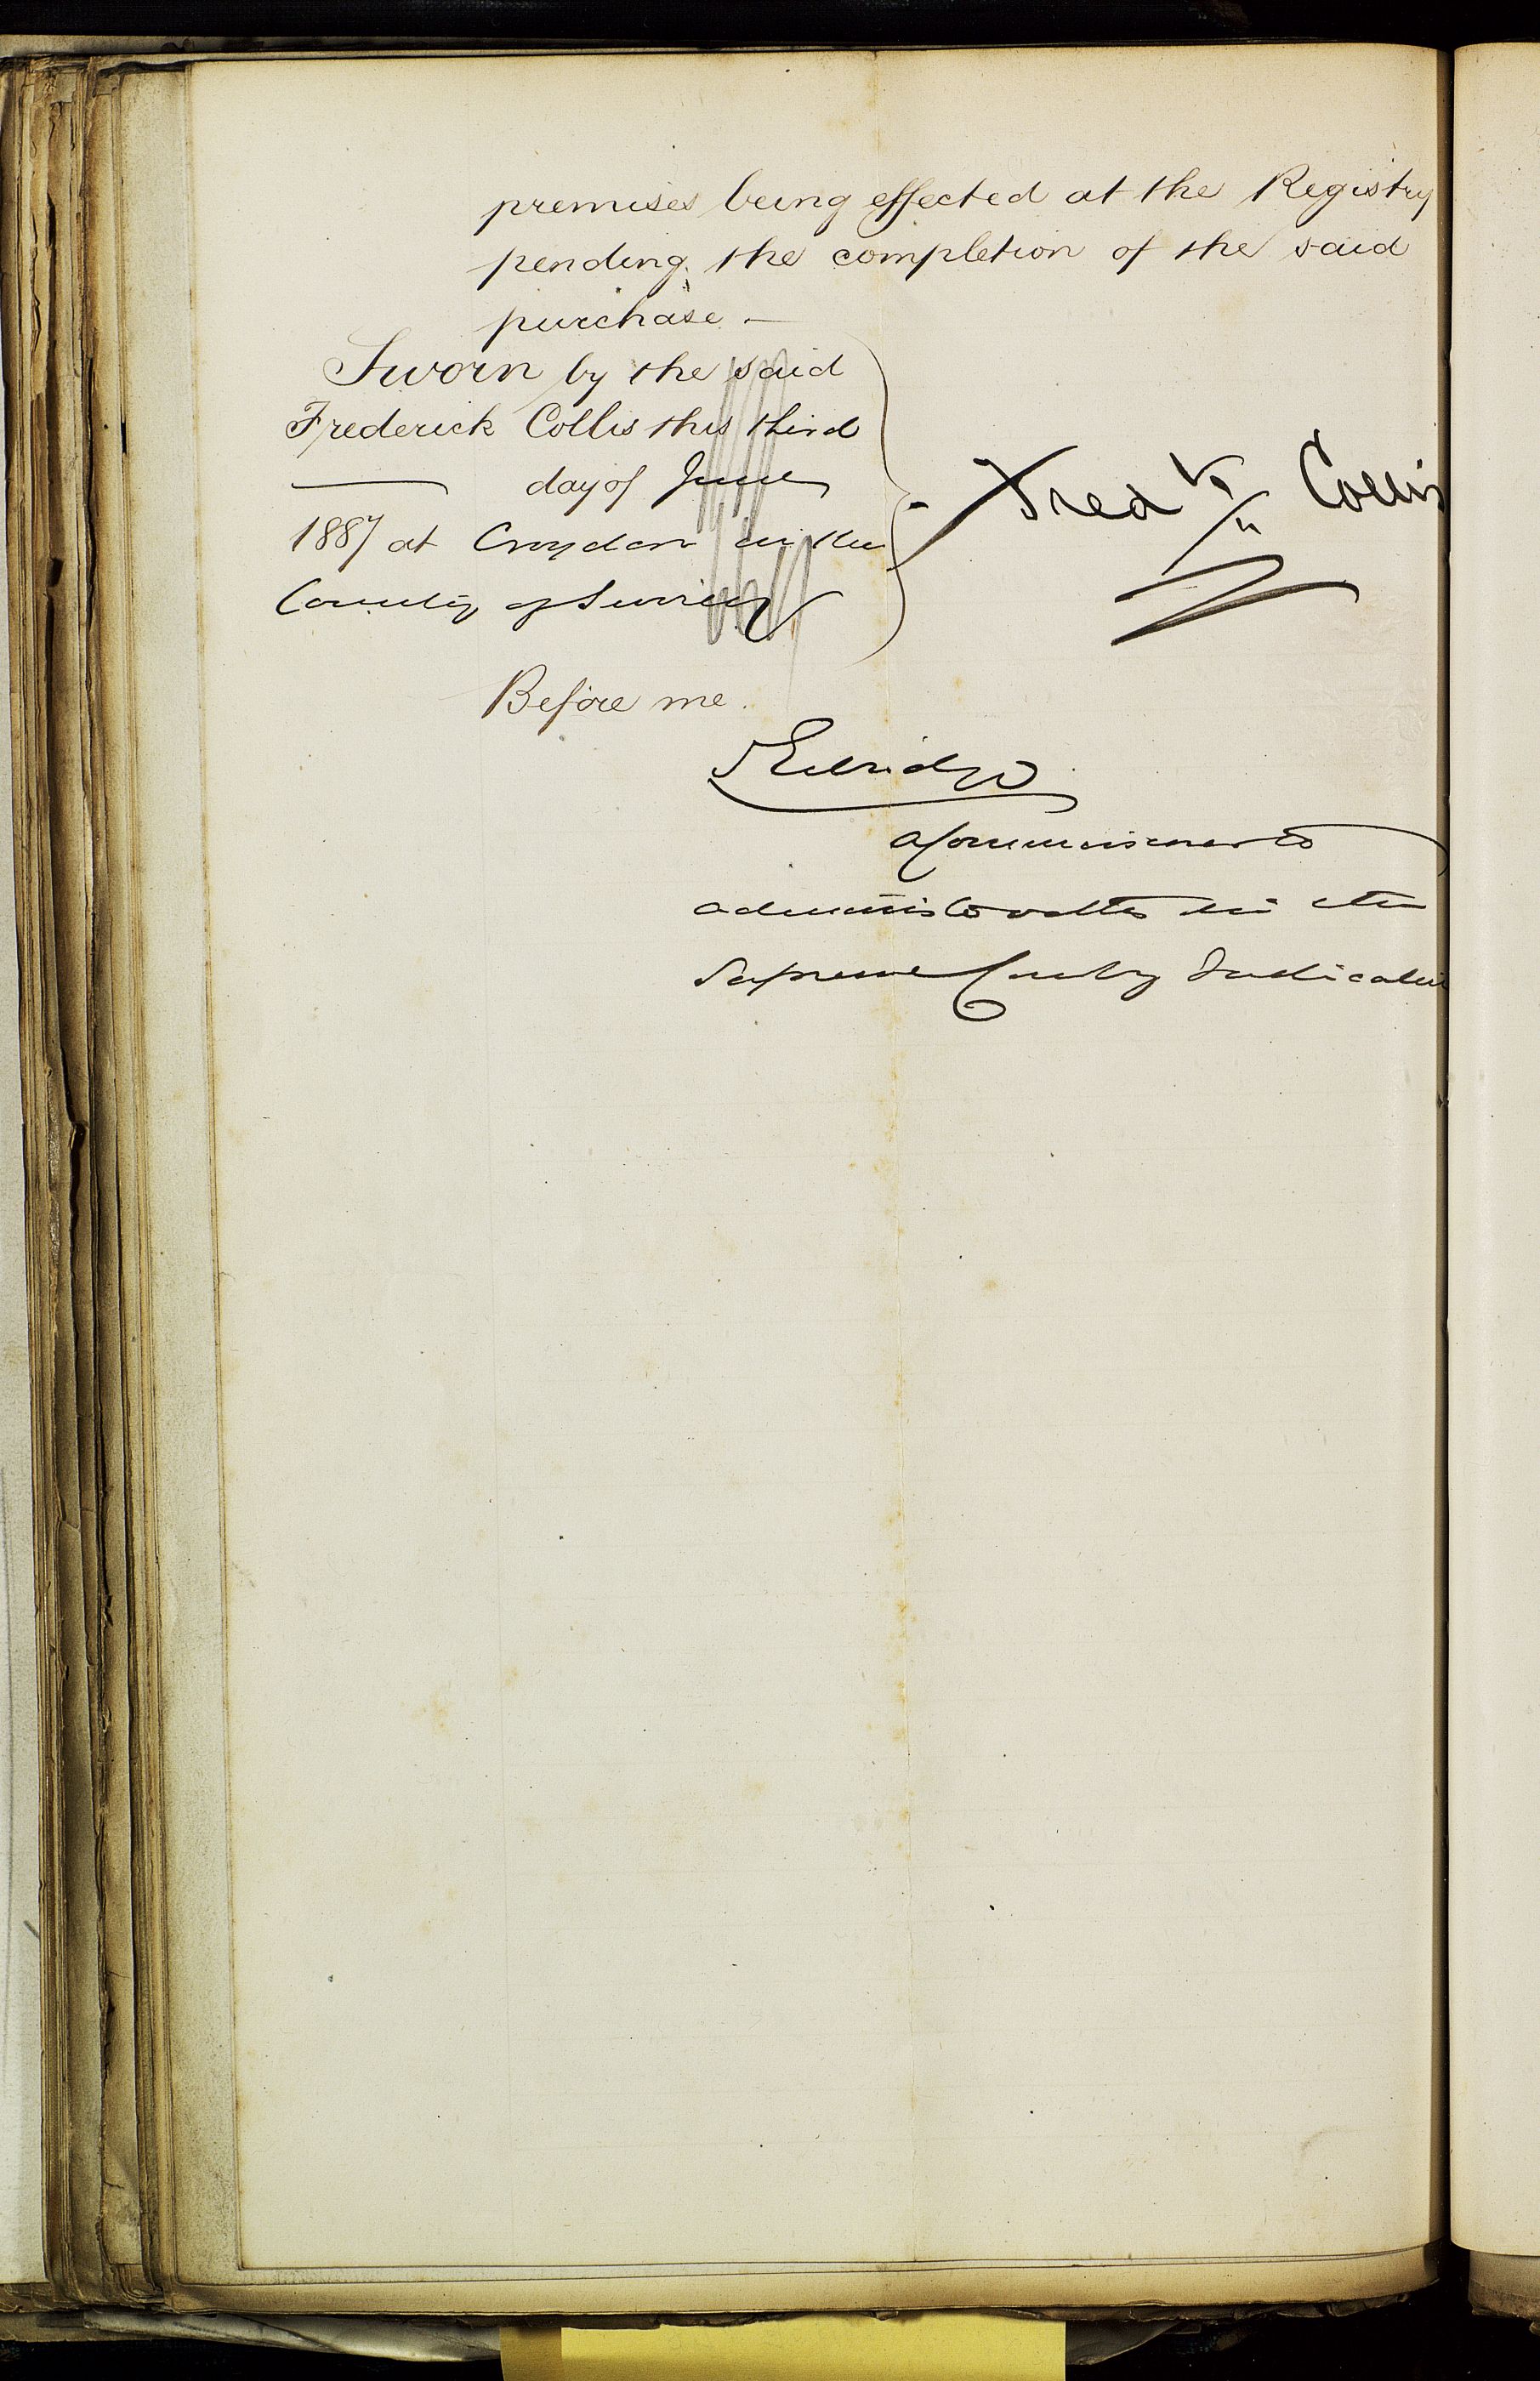 premises being effected at the Registry
pending the completion of the said
purchase —
Sworn by the said
Frederick Collis this third
day of June
1887 at Croydon in the
County of Surrey
Fredk Collis
Before me.
A Commissioner to
administer oaths in the
Supreme Court of Judicature